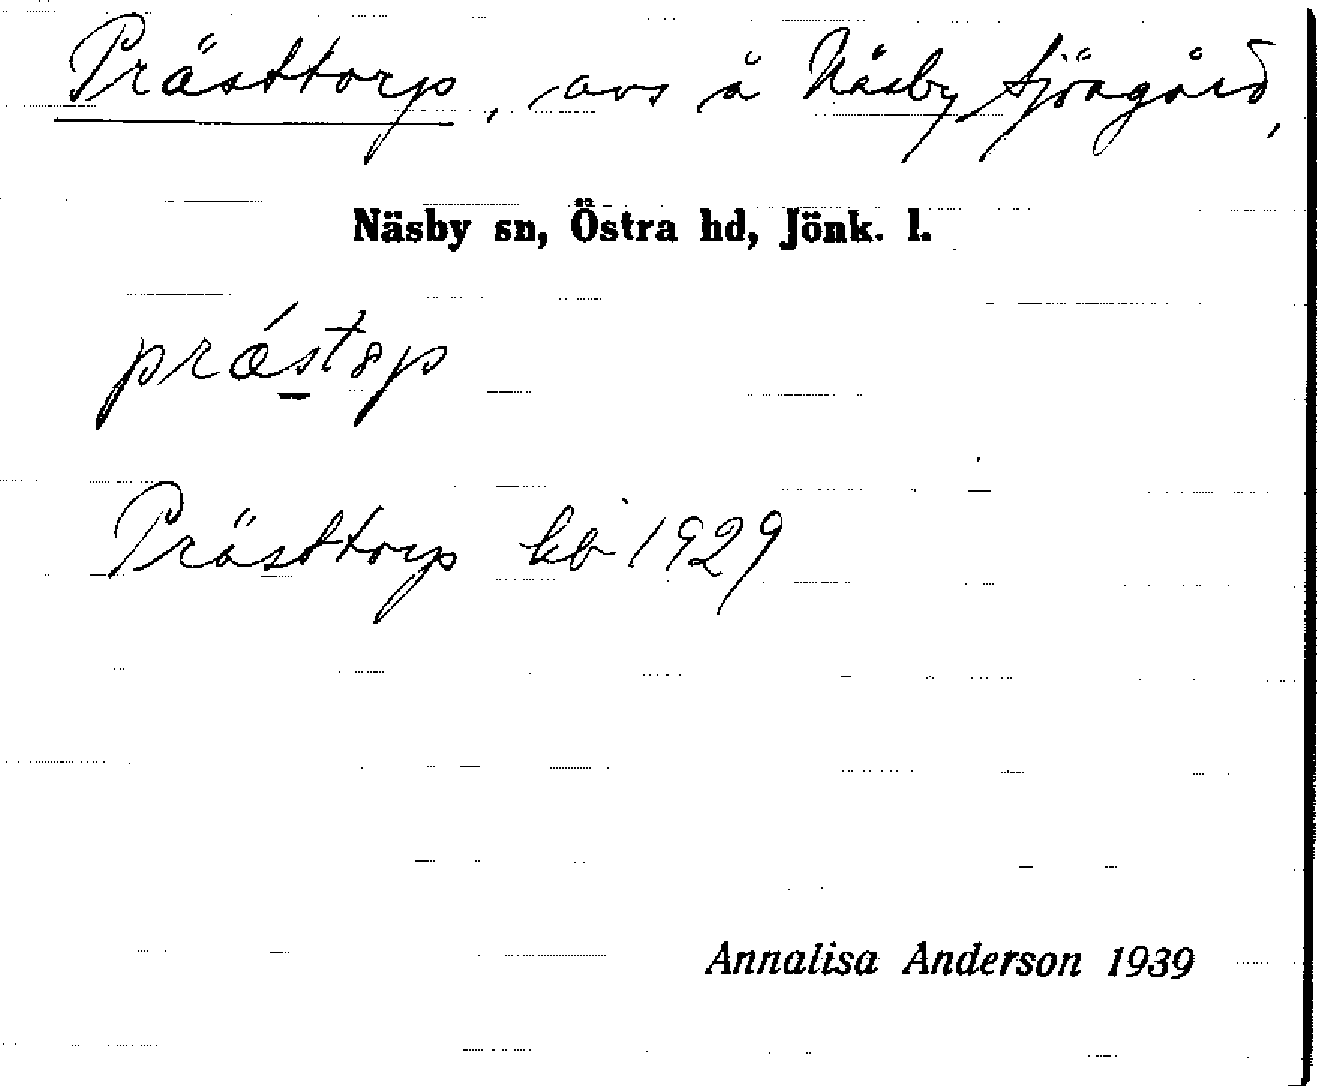 Prästtorp, avs å Näsby Sjöagård,
Näsby sn, Östra hd, Jönk. l.
Prästtorp kb 1929
Annalisa Anderson 1939